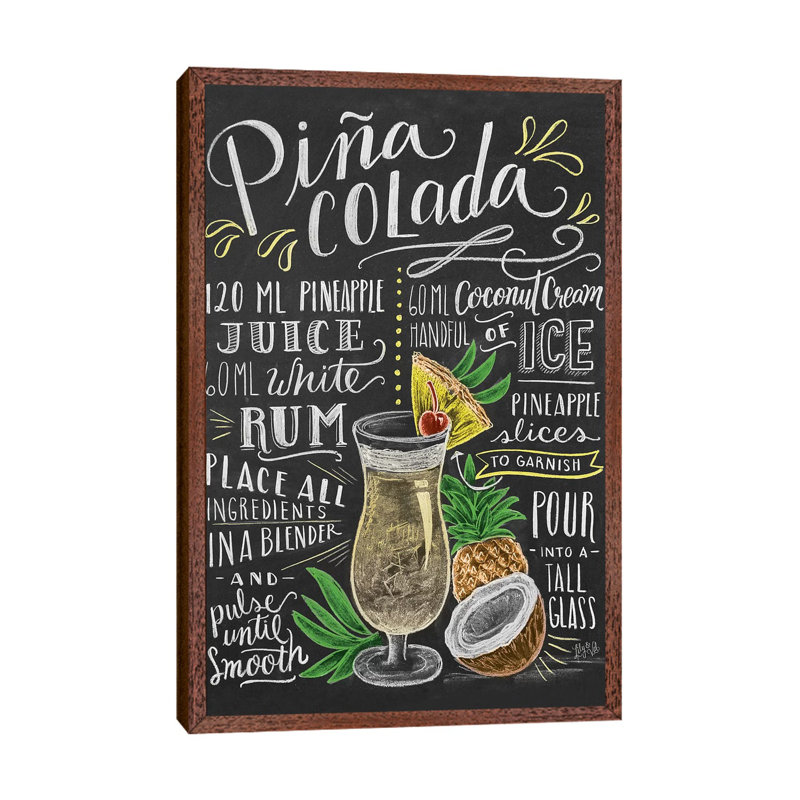 Piña
COLada
120 ML PINEAPPLE
JUICE
60ML White
RUM
60ML Coconut Cream
HANDFUL OF ICE
PINEAPPLE
slices
TO GARNISH
PLACE ALL
INGREDIENTS
IN A BLENDER
-AND-
pulse
until
Smooth
POUR
-INTO A-
TALL
GLASS
Lily & Val